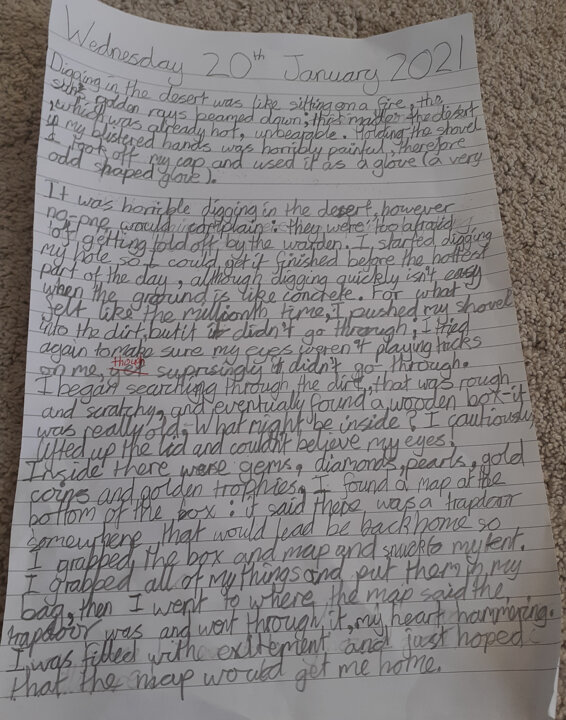 Wednesday 20th January 2021
Digging in the desert was like sitting on a fire, the
suns golden rays beamed down; this made the desert
,which was already hot, unbearable. Holding the shovel
in my blistered hands was horribly painful, therefore
I took off my cap and used it as a glove (a very
odd shaped glove).
It was horrible digging in the desert, however
no-one would complain: they were too afraid
of getting told off by the warden. I started digging
my hole so I could get it finished before the hottest
part of the day, although digging quickly isn't easy
when the ground is like concrete. For what
felt like the millionth time, I pushed my shovel
into the dirt, but it didn't go through; I tried
again to make sure my eyes weren't playing tricks
though
on me, suprisingly it didn't go through.
I began searching through the dirt, that was rough
and scratchy, and eventually found a wooden box-it
was really old. What might be inside? I cautiously
lifted up the lid and couldn't believe my eyes.
Inside there were gems, diamonds, pearls, gold
coins and golden trophies. I found a map at the
bottom of the box: it said there was a trapdoor
somewhere that would lead be back home so
I grabbed the box and map and snuck to my tent.
I grabbed all of my things and put them in my
bag, then I went to where the map said the
trapdoor was and went through it, my heart hammering.
I was filled withe exitement and just hoped
that the map would get me home.